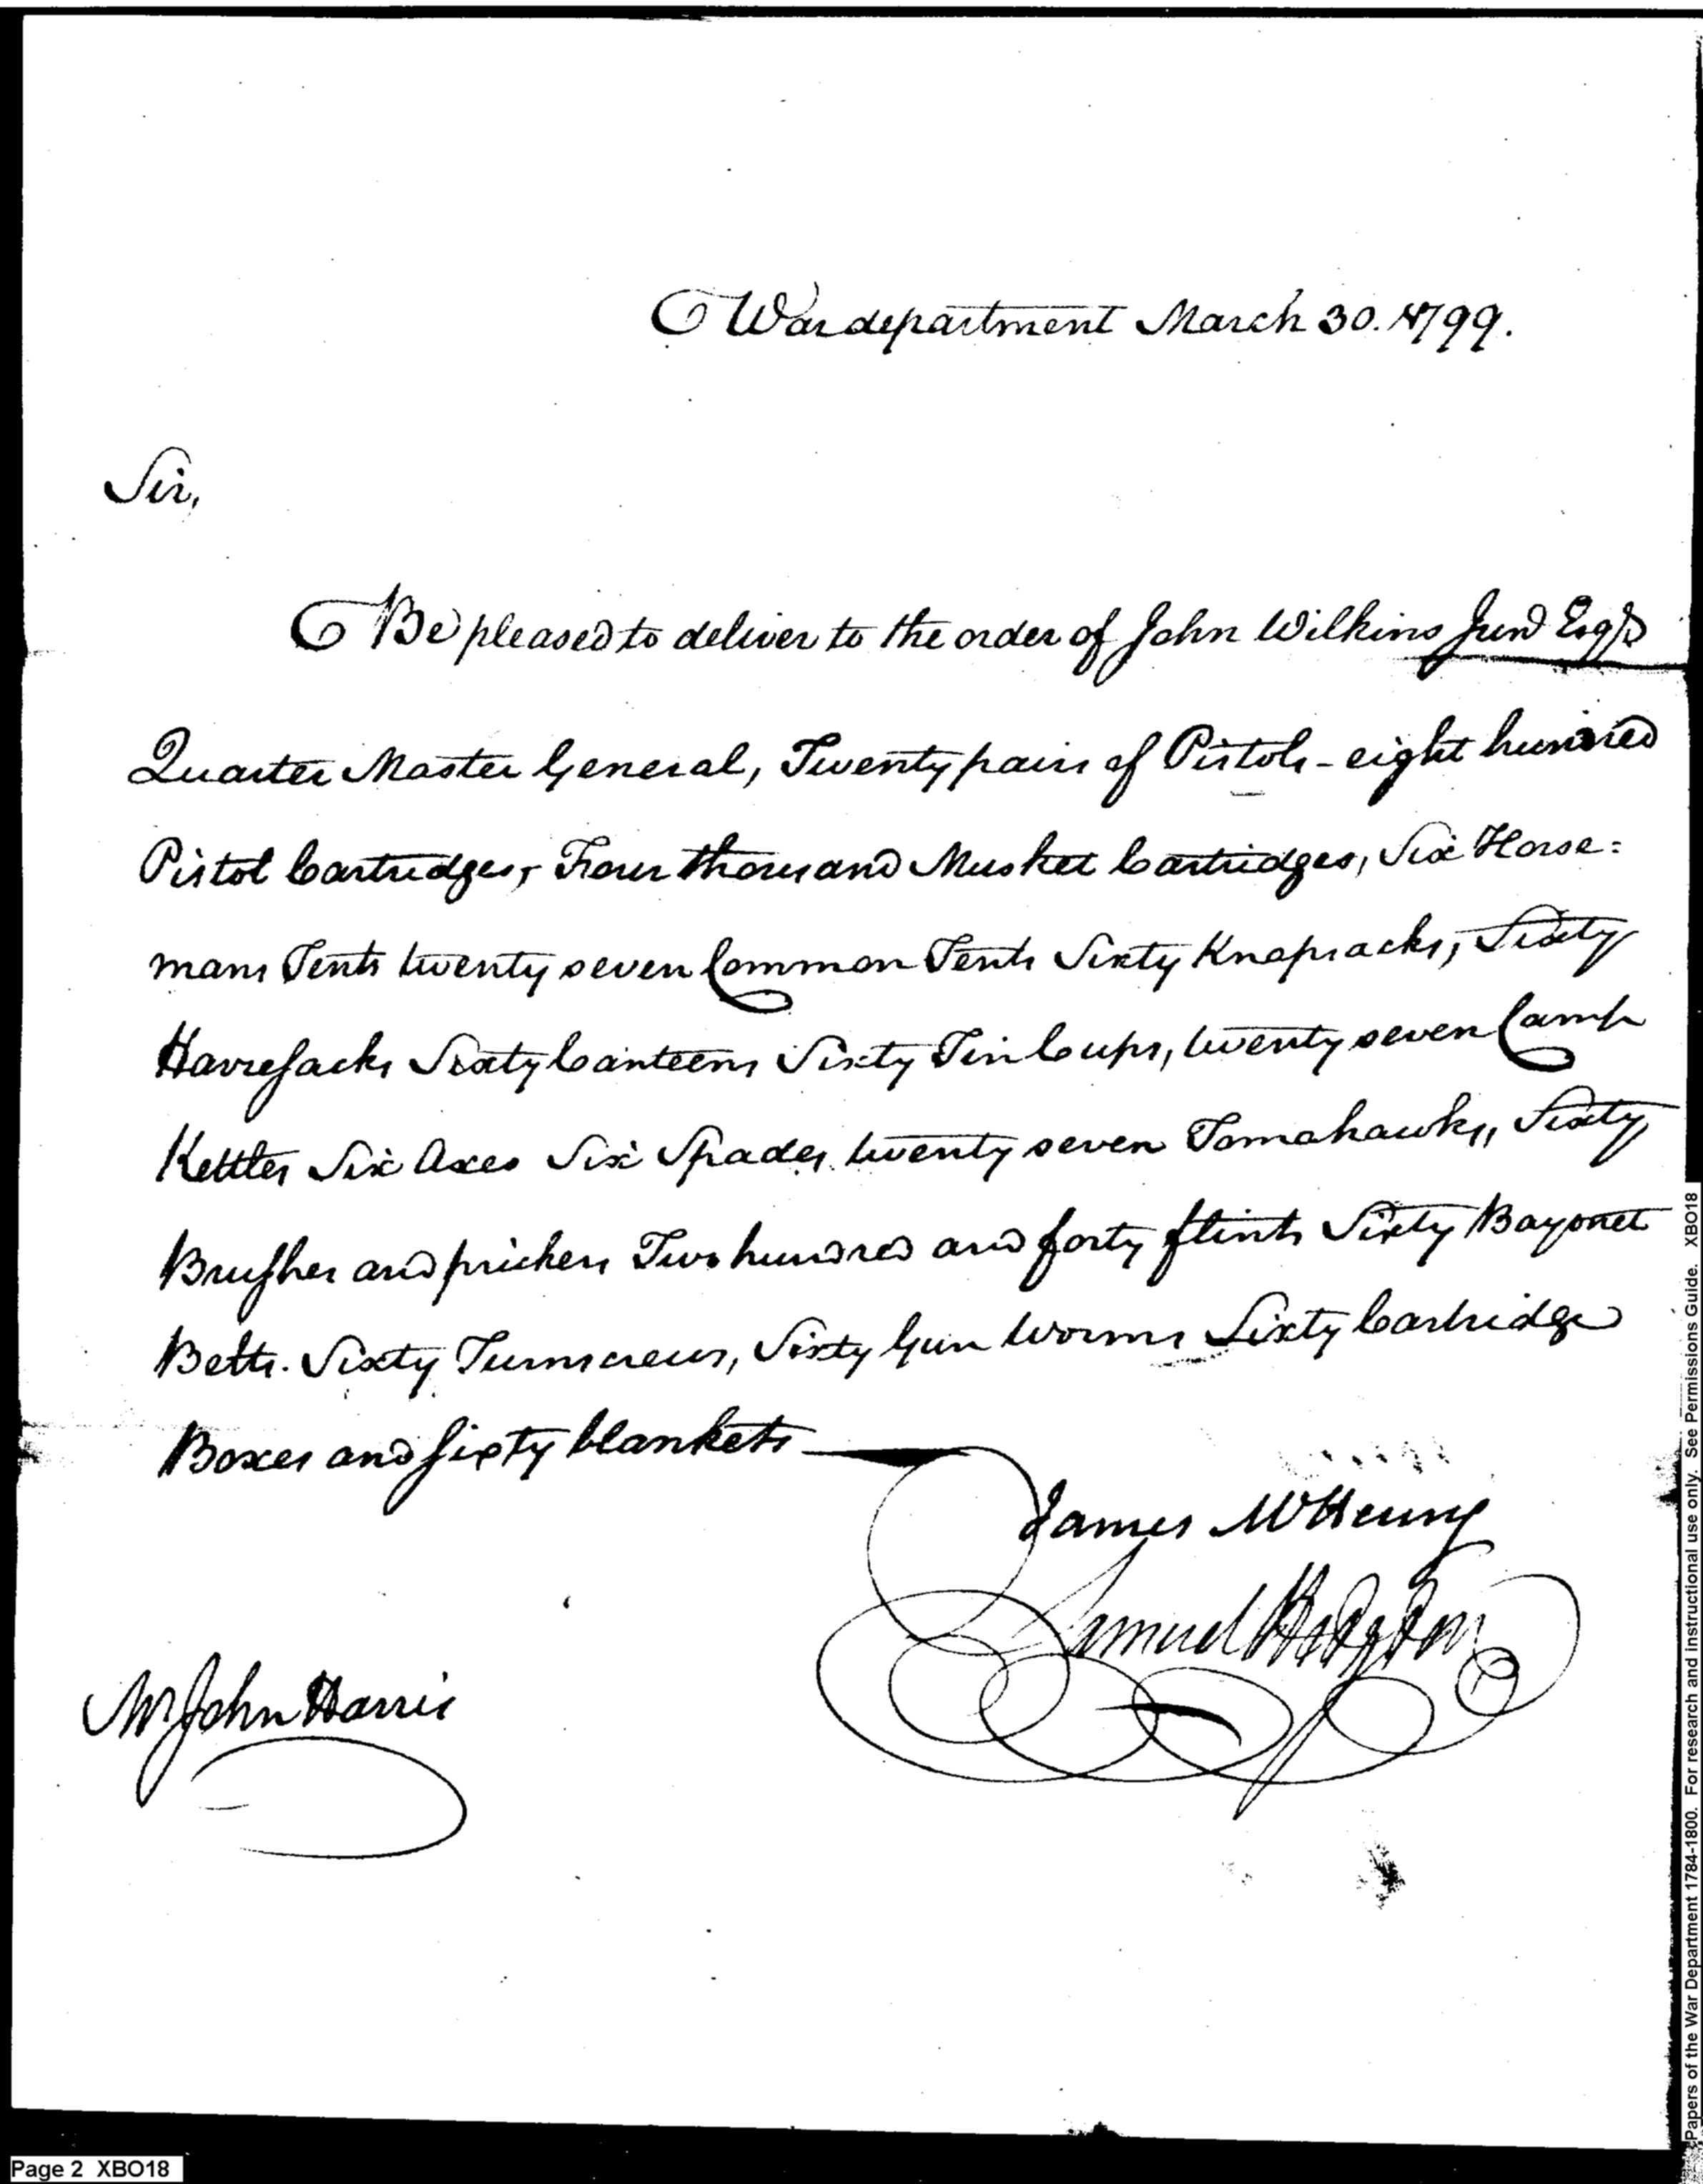 War department March 30. 1799.
Sir,
Be pleased to deliver to the order of John Wilkins Junr Esqr
Quarter Master General, Twenty pairs of Pistols - eight hundred
Pistol Cartridges, Four thousand Musket Cartridges, Six Horse=
mans Tents twenty seven Common Tents Sixty Knapsacks, Sixty
Havresacks Sixty Canteens Sixty Tin Cups, twenty seven Camp
Kettles Six Axes Six Spades, twenty seven Tomahawks, Sixty
Brushes and prickers Two hundred and forty flints Sixty Bayonet
Belts. Sixty Turnscrews, Sixty Gun Worms Sixty Cartridge
Boxes and sixty blankets
James McHenry
Samuel Hodgdon
Mr John Harris
Papers of the War Department 1784-1800. For research and instructional use only. See Permissions Guide. XBO18
Page 2 XBO18